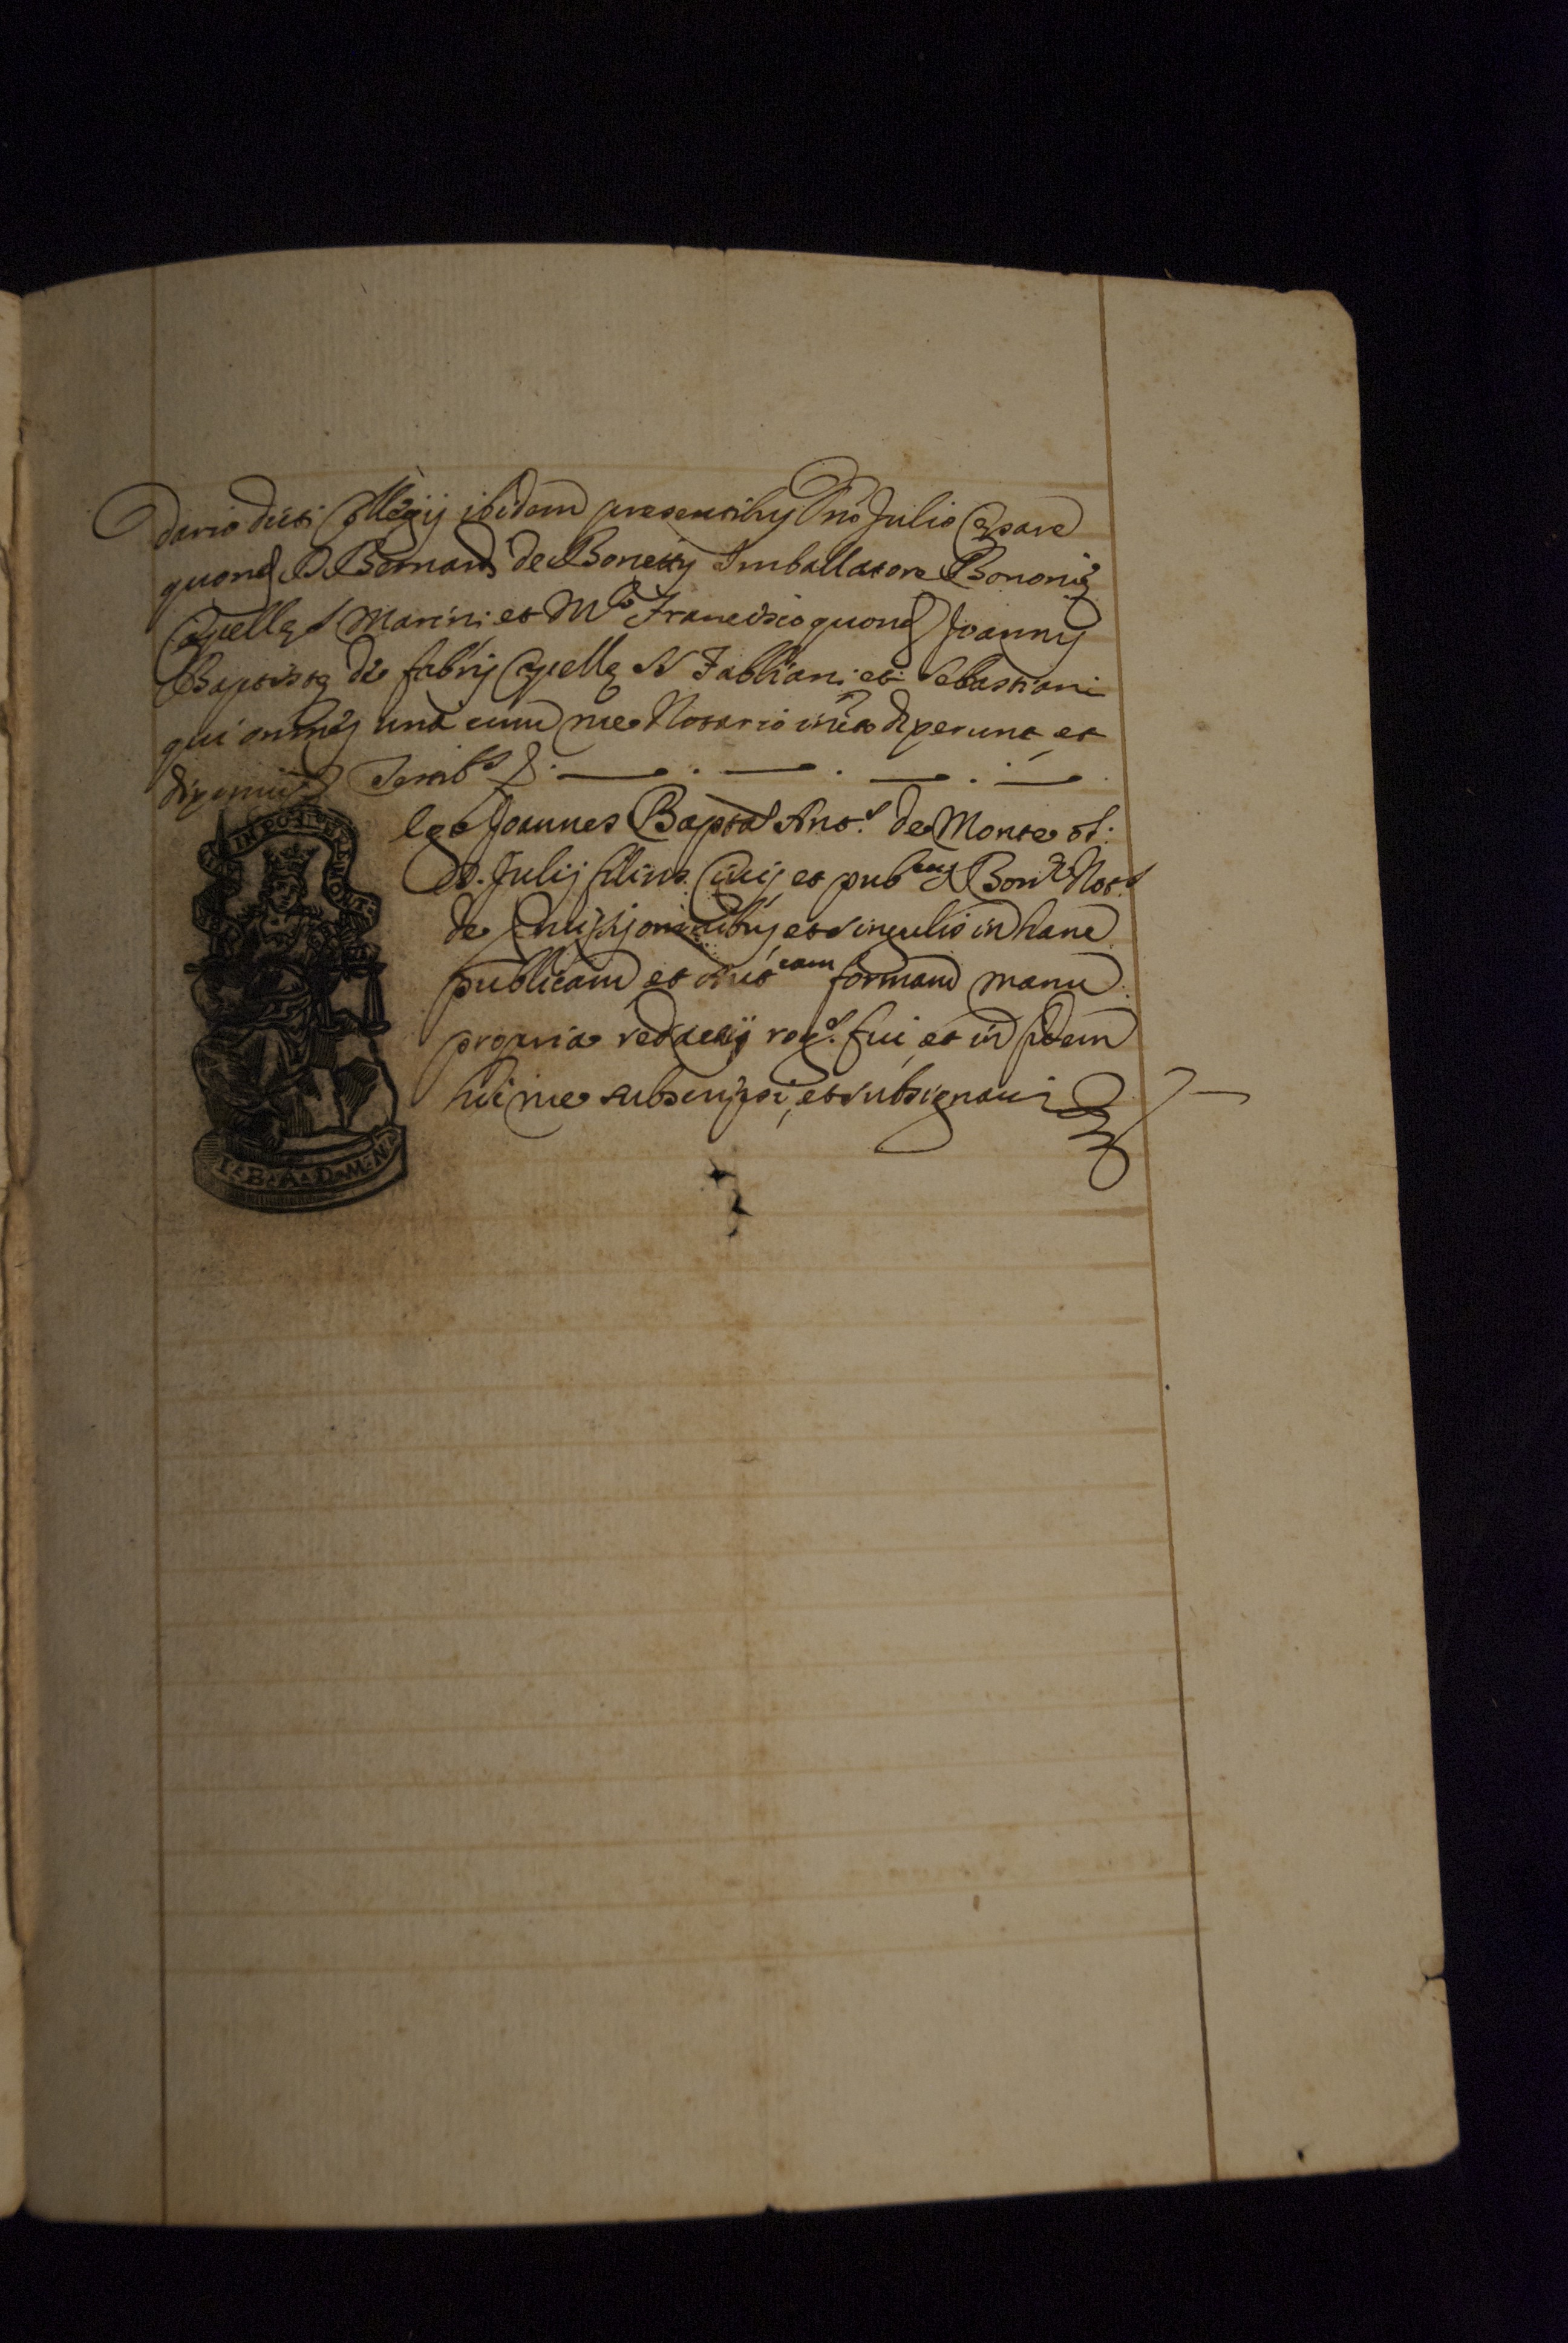 dario dicti Collegij ibidem presentibus Dno Julio Cesare
quond D. Bernardi de Bonettis Imballatore Bononię
Capellę S Marini et Mro Francisco quond Joannis
Baptistę de fabris Capellę SS Fabbiani et Sebastiani
qui omnes una cum me Notario infto dixerunt et
Testibs
Ego Joannes Bapta Ants de Monte ol:
D. Julij filius Civis et pubcus Bonae Nots
de omnibus et singulis in hanc
publicam et auctcam formam manu
propria redactis rogs fui et in fidem
hic me subscripsi, et subsignaui
I·B·A·D·M·N